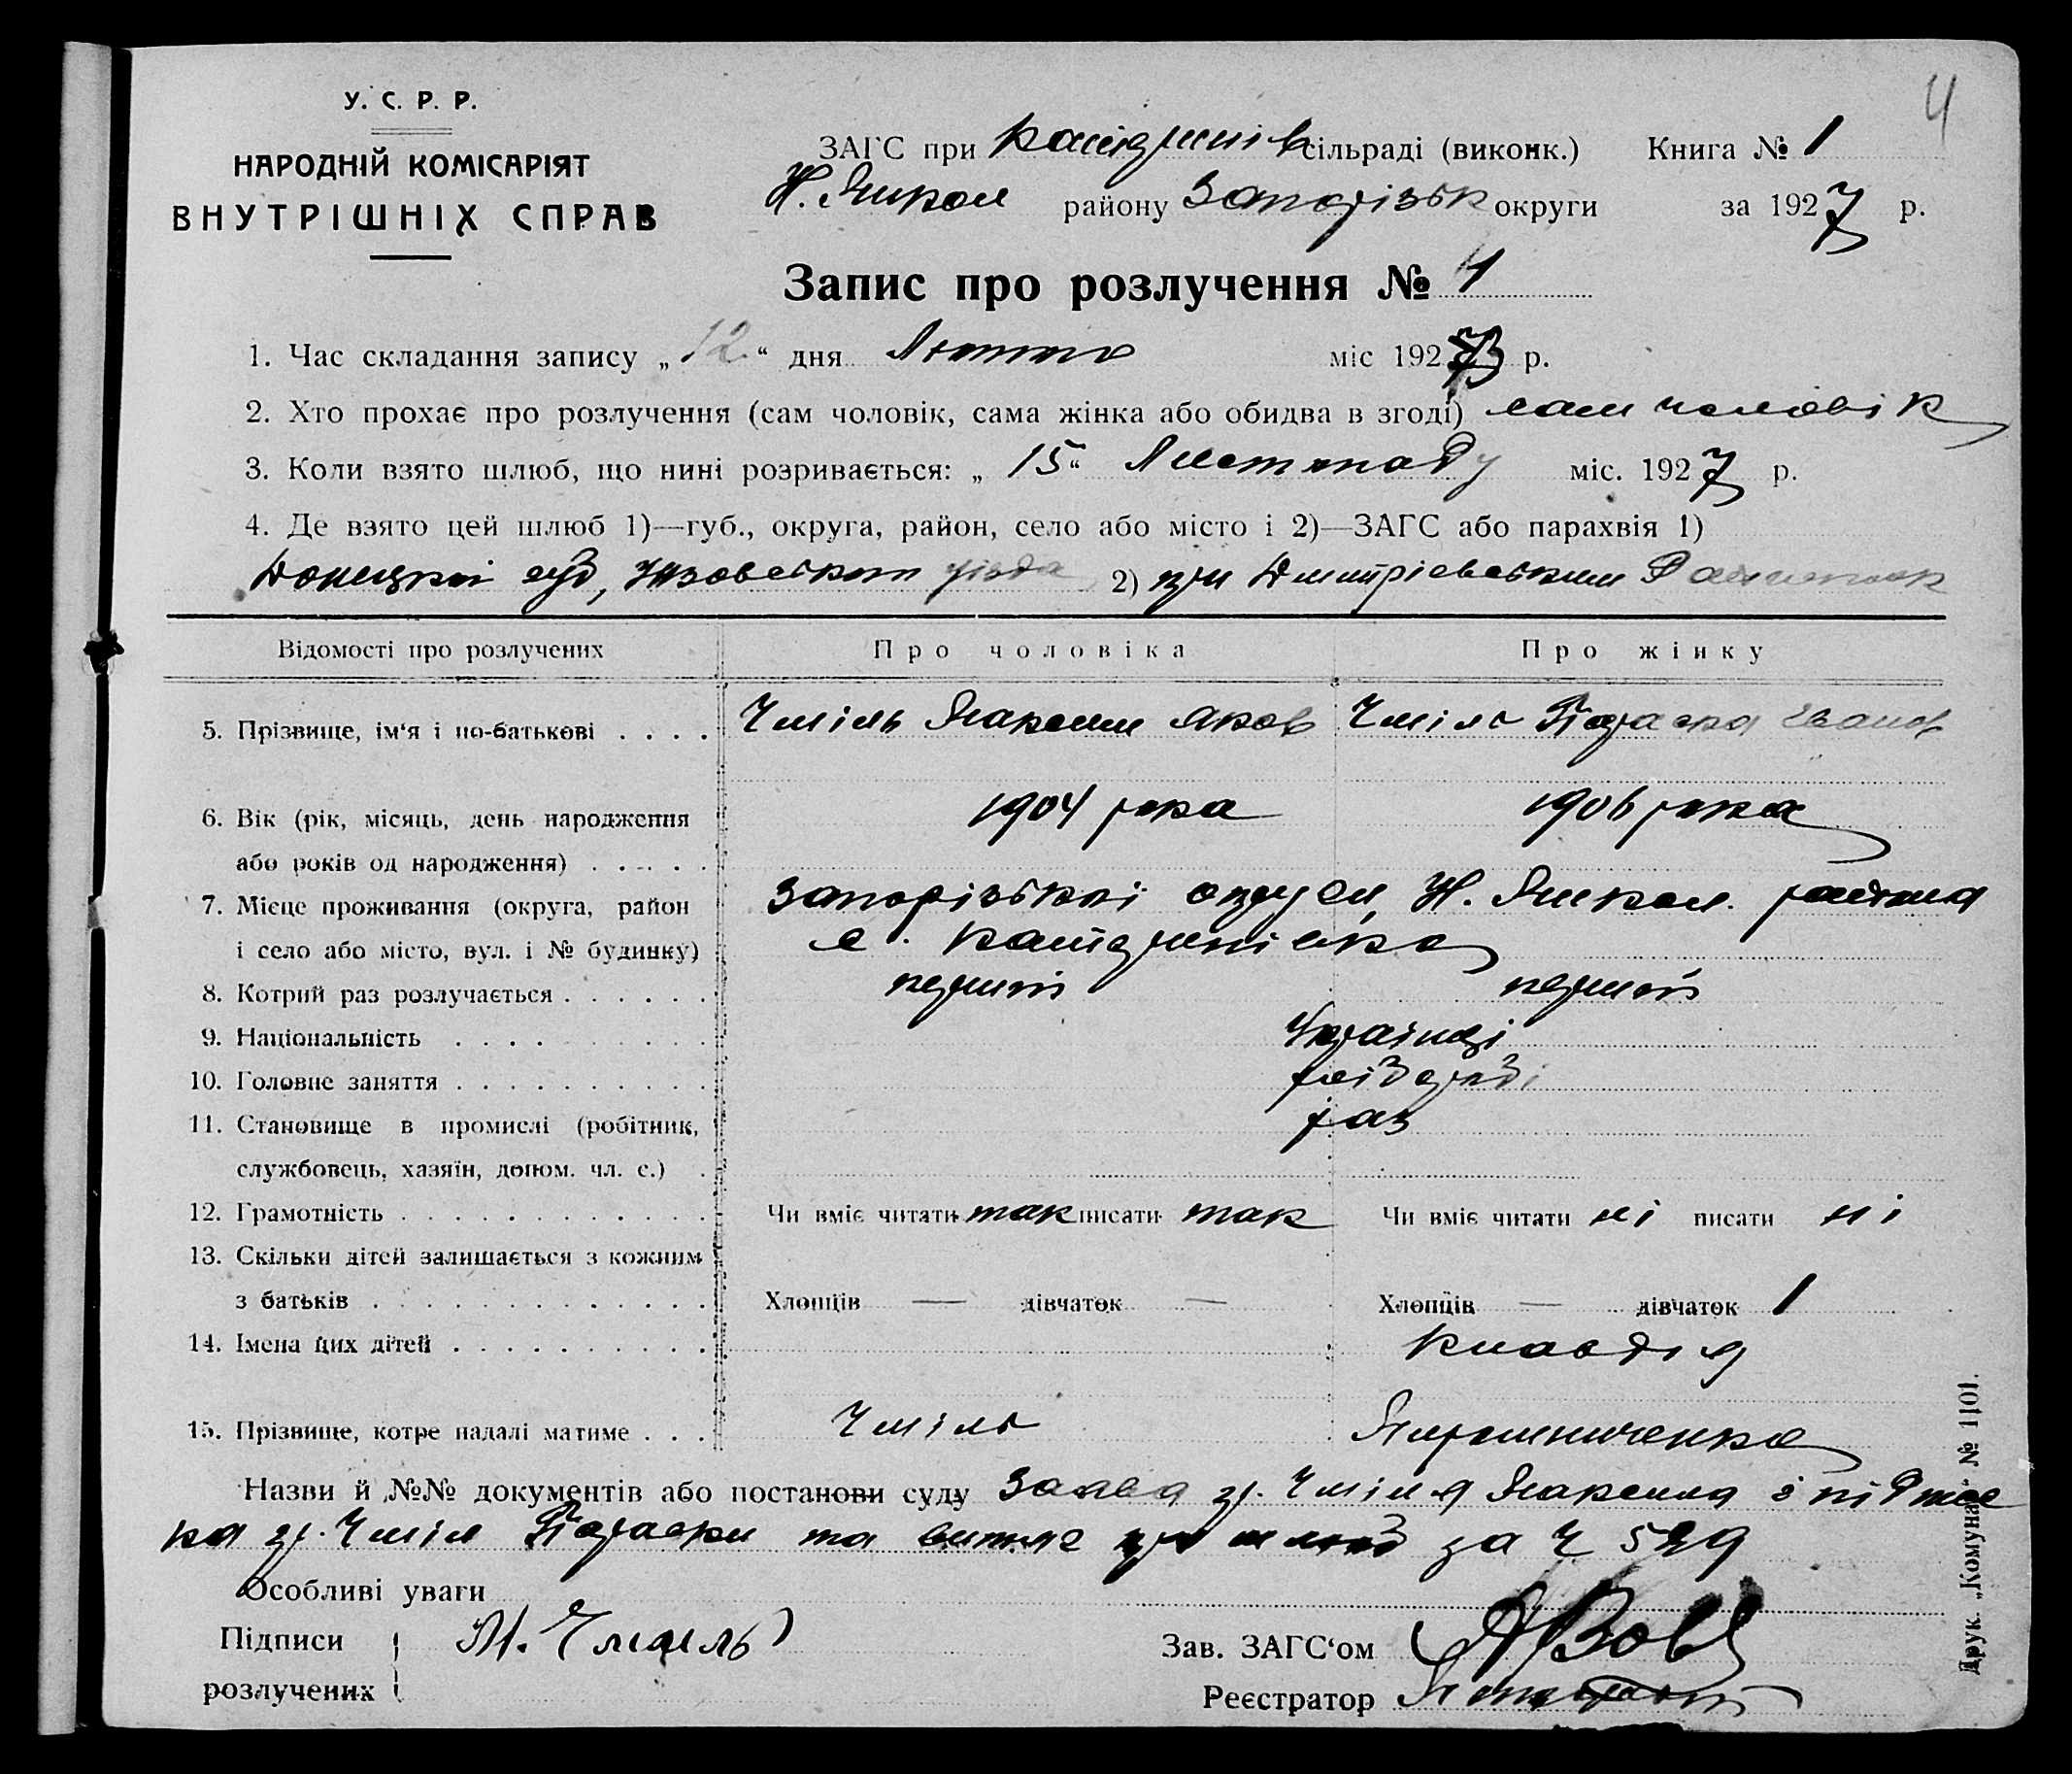 4
У. С. Р. Р.
НАРОДНІЙ КОМІСАРІЯТ
ВНУТРІШНІХ СПРАВ
ЗАГС при сільраді (виконк.) Книга № 1
району Запорізьк округи за 1927 р.
Запис про розлучення № 1
1. Час складання запису „12“ дня Лютого міс 192 р.
2. Хто прохає про розлучення (сам чоловік, сама жінка або обидва в згоді) сам чоловік
3. Коли взято шлюб, що нині розривається: „15“ Листопаду міс. 1927 р.
4. Де взято цей шлюб 1)—губ., округа, район, село або місто і 2)—ЗАГС або парахвія 1)
Донецкої губ, Юзовськой 2) при Дмитрієвським
Відомості про розлучених Про чоловіка Про жінку
5. Прізвище, ім'я і по-батькові . . . . Чміль Максим Яков Чміль Параска Іванов
6. Вік (рік, місяць, день народження 1904 рока 1906 рока
або років од народження) . . . . .
7. Місце проживання (округа, район Запорізької округи, района
і село або місто, вул. і № будинку) с.
8. Котрий раз розлучається . . . . . . перший перший
9. Національність . . . . Українці
10. Головне заняття . . . . . . . . . . хлібороби
11. Становище в промислі (робітник, хаз
службовець, хазяїн, допом. чл. с.) .
12. Грамотність . . . . . . . . . . . . Чи вміє читати так писати так Чи вміє читати ні писати ні
13. Скільки дітей залишається з кожним
з батьків . . . . . . . . . . . . . Хлопців — дівчаток — Хлопців — дівчаток 1
14. Імена цих дітей . . . . . . . . . . Клавдія
15. Прізвище, котре надалі матиме . . . Чміль Мирошниченко
Назви й №№ документів або постанови суду Заява гр. Чміля Максима
гр. Чміль Параски та витяг про шлюб за Ч 529
Особливі уваги
Підписи М. Чмиль Зав. ЗАГС'ом
розлучених Реєстратор
Друк. „Комунар“ № 1101.